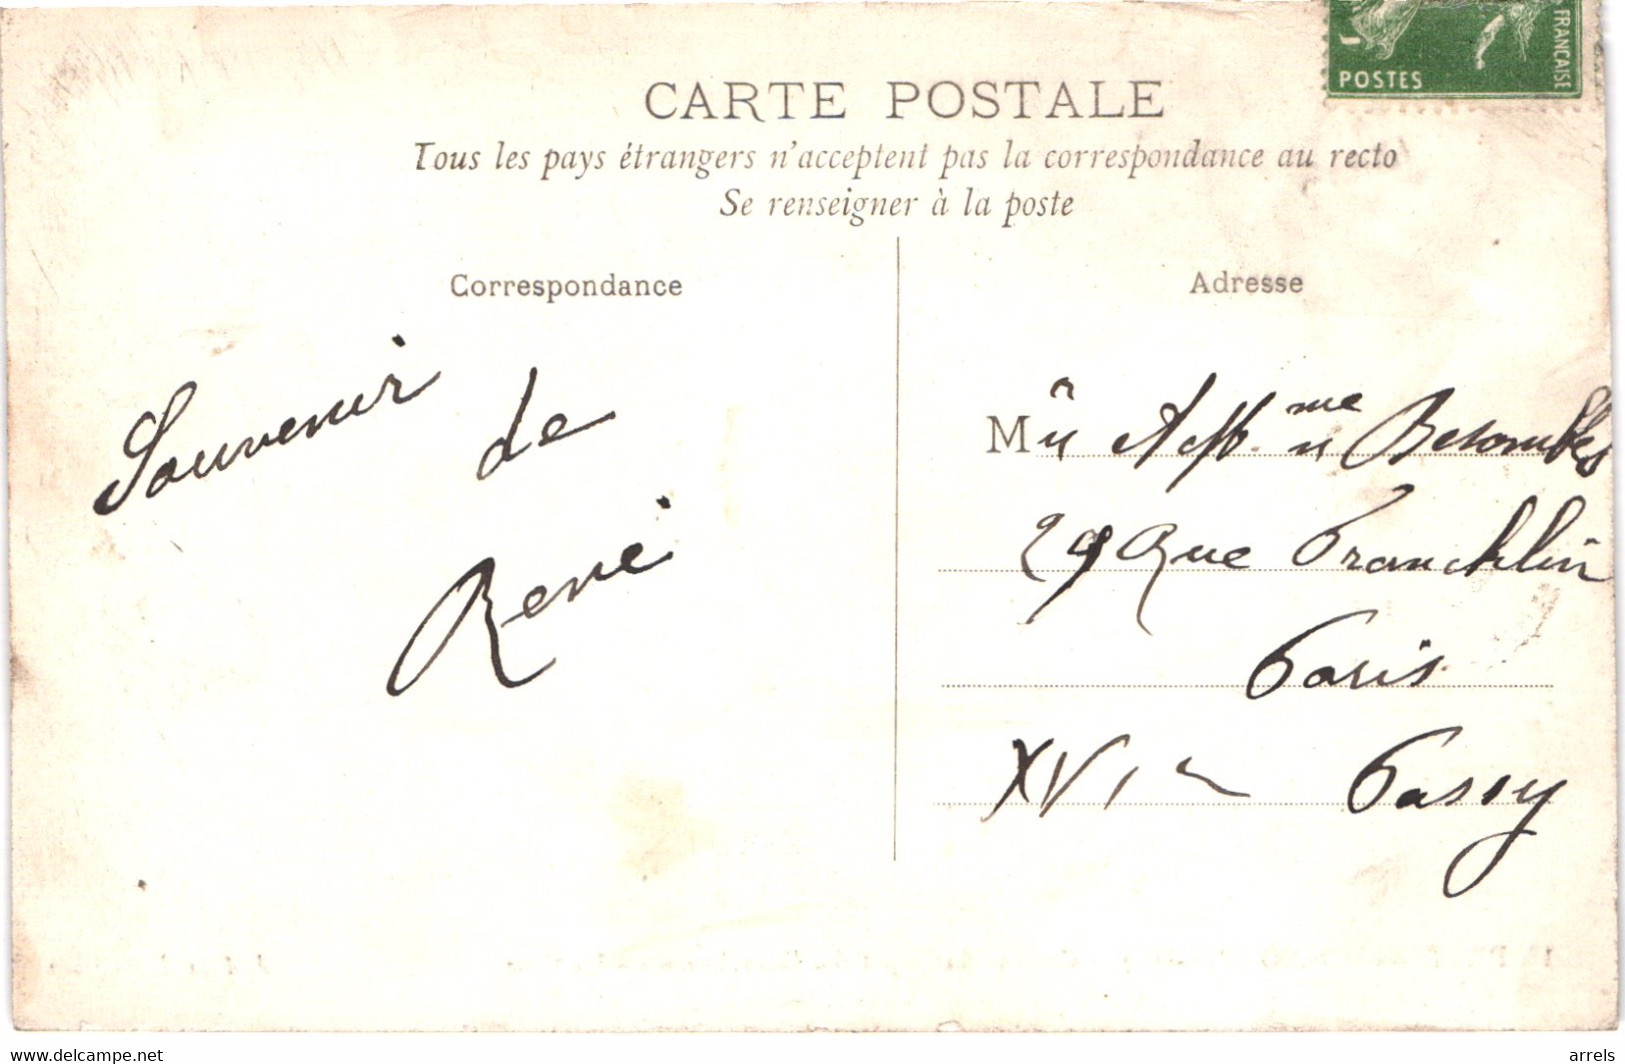 POSTES
FRANCAISE
CARTE POSTALE
Tous les pays étrangers n'acceptent pas la correspondance au recto
Se renseigner à la poste
Correspondance
Adresse
Souvenir
de
René
M me Besombes
29 Rue Francklin
Paris
XVI Passy
www.delcampe.net
arrels